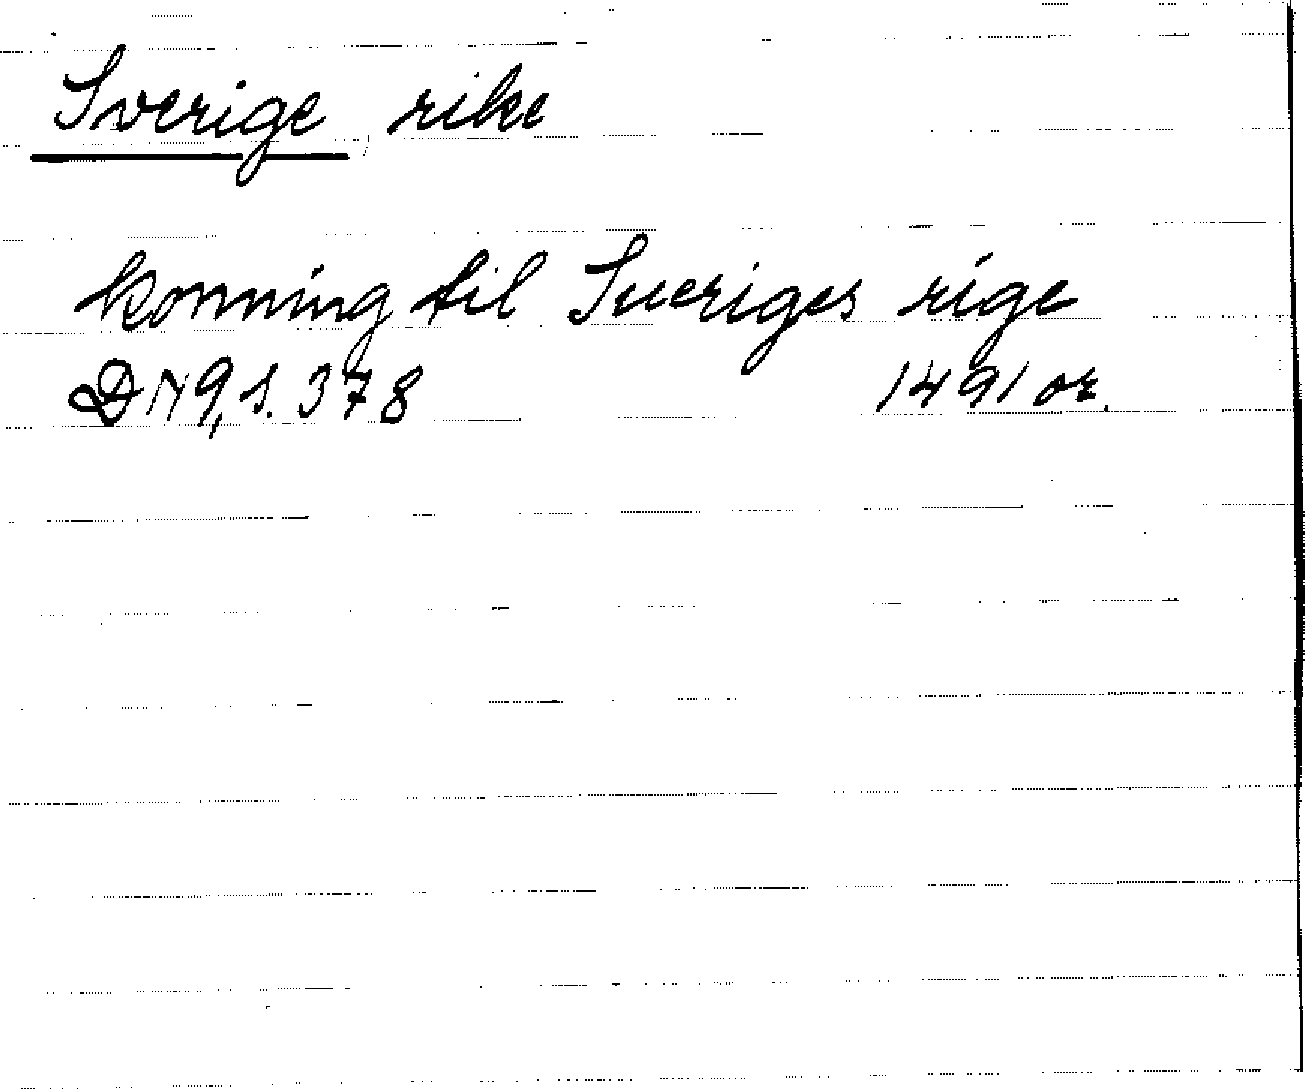 Sverige, rike
konning til Sueriges rige
DN 9, s. 378 1491 or.